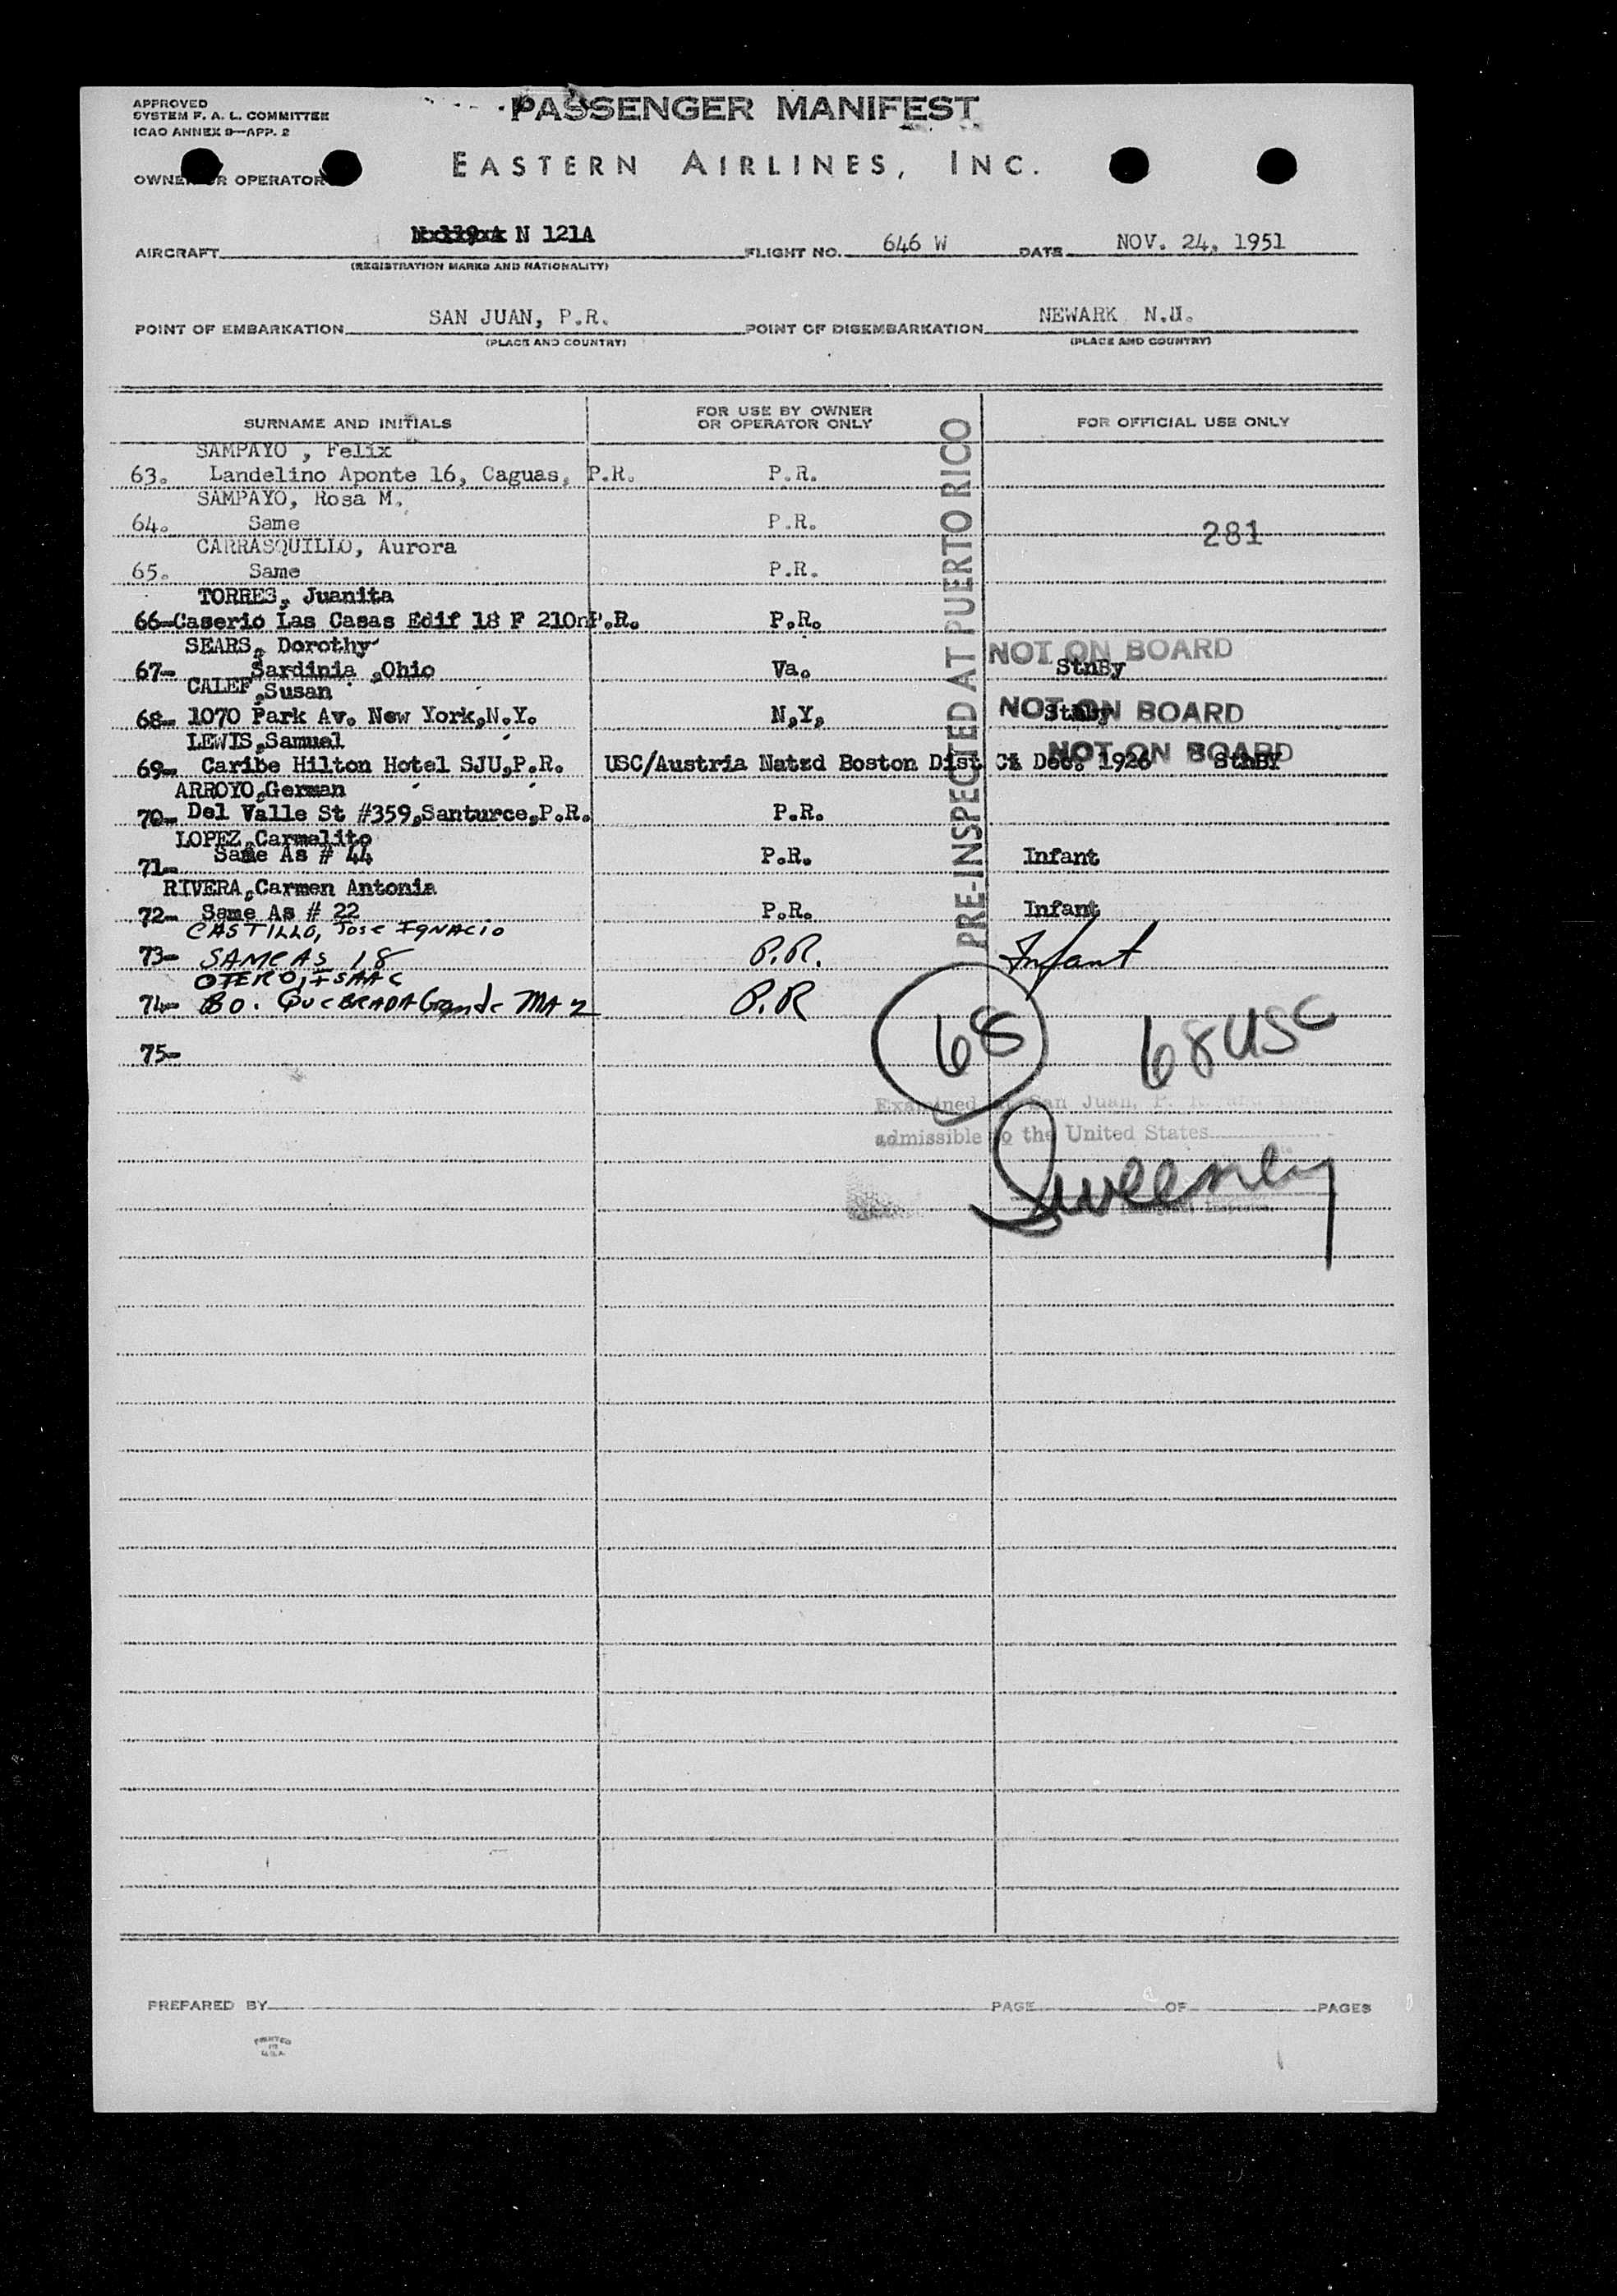 APPROVED
SYSTEM F. A. L. COMMITTEE
ICAO ANNEX 9—APP. 2
PASSENGER MANIFEST
EASTERN AIRLINES, INC.
OWNER OR OPERATOR
AIRCRAFT N 121A FLIGHT NO. 646 W DATE NOV. 24, 1951
(REGISTRATION MARKS AND NATIONALITY)
POINT OF EMBARKATION SAN JUAN, P.R. POINT OF DISEMBARKATION NEWARK N.J.
(PLACE AND COUNTRY) (PLACE AND COUNTRY)
SURNAME AND INITIALS FOR USE BY OWNER OR OPERATOR ONLY FOR OFFICIAL USE ONLY
SAMPAYO , Felix
63. Landelino Aponte 16, Caguas, P.R. P.R.
SAMPAYO, Rosa M.
64. Same P.R. 281
CARRASQUILLO, Aurora
65. Same P.R.
TORRES, Juanita
66-Caserio Las Casas Edif 18 F 210 P.R. P.R.
SEARS, Dorothy NOT ON BOARD
67- Sardinia ,Ohio Va. StnBy
CALEF ,Susan
68- 1070 Park Av. New York,N.Y. N.Y. NOT ON BOARD StnBy
LEWIS,Samuel NOT ON BOARD
69- Caribe Hilton Hotel SJU,P.R. USC/Austria Natzd Boston Dist Ct Dec. 1926 StnBy
ARROYO,German
70- Del Valle St #359,Santurce,P.R. P.R.
LOPEZ,Carmelito
71- Same As # 44 P.R. Infant
RIVERA,Carmen Antonia
72- Same As # 22 P.R. Infant
CASTILLO, Jose Ignacio
73- SAME AS 18 P.R. Infant
OTERO, ISAAC
74- BO. QUEBRADA Grande MAZ P.R
75-
PRE-INSPECTED AT PUERTO RICO
68 68 USC
Examined at San Juan, P. R. and
admissible to the United States
Sweeney
PREPARED BY PAGE OF PAGES
PRINTED
IN
U.S.A.